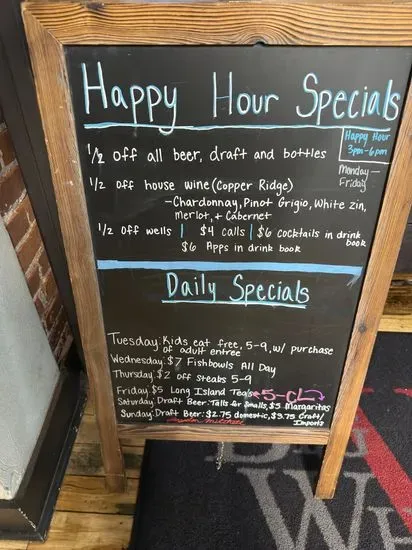 Happy Hour Specials
Happy Hour
3pm-6pm
Monday-
Friday
1/2 off all beer, draft and bottles
1/2 off house wine (Copper Ridge)
-Chardonnay, Pinot Grigio, White zin,
merlot, + Cabernet
1/2 off wells | $4 calls | $6 cocktails in drink
book
$6 Apps in drink book
Daily Specials
Tuesday: Kids eat free, 5-9, w/ purchase
of adult entree
Wednesday: $7 Fishbowls All Day
Thursday: $2 off Steaks 5-9
Friday: $5 Long Island Tea's 5-CL
Saturday: Draft Beer: Talls for Smalls, $5 Margaritas
Sunday: Draft Beer: $2.75 domestic, $3.75 Craft/
Imports